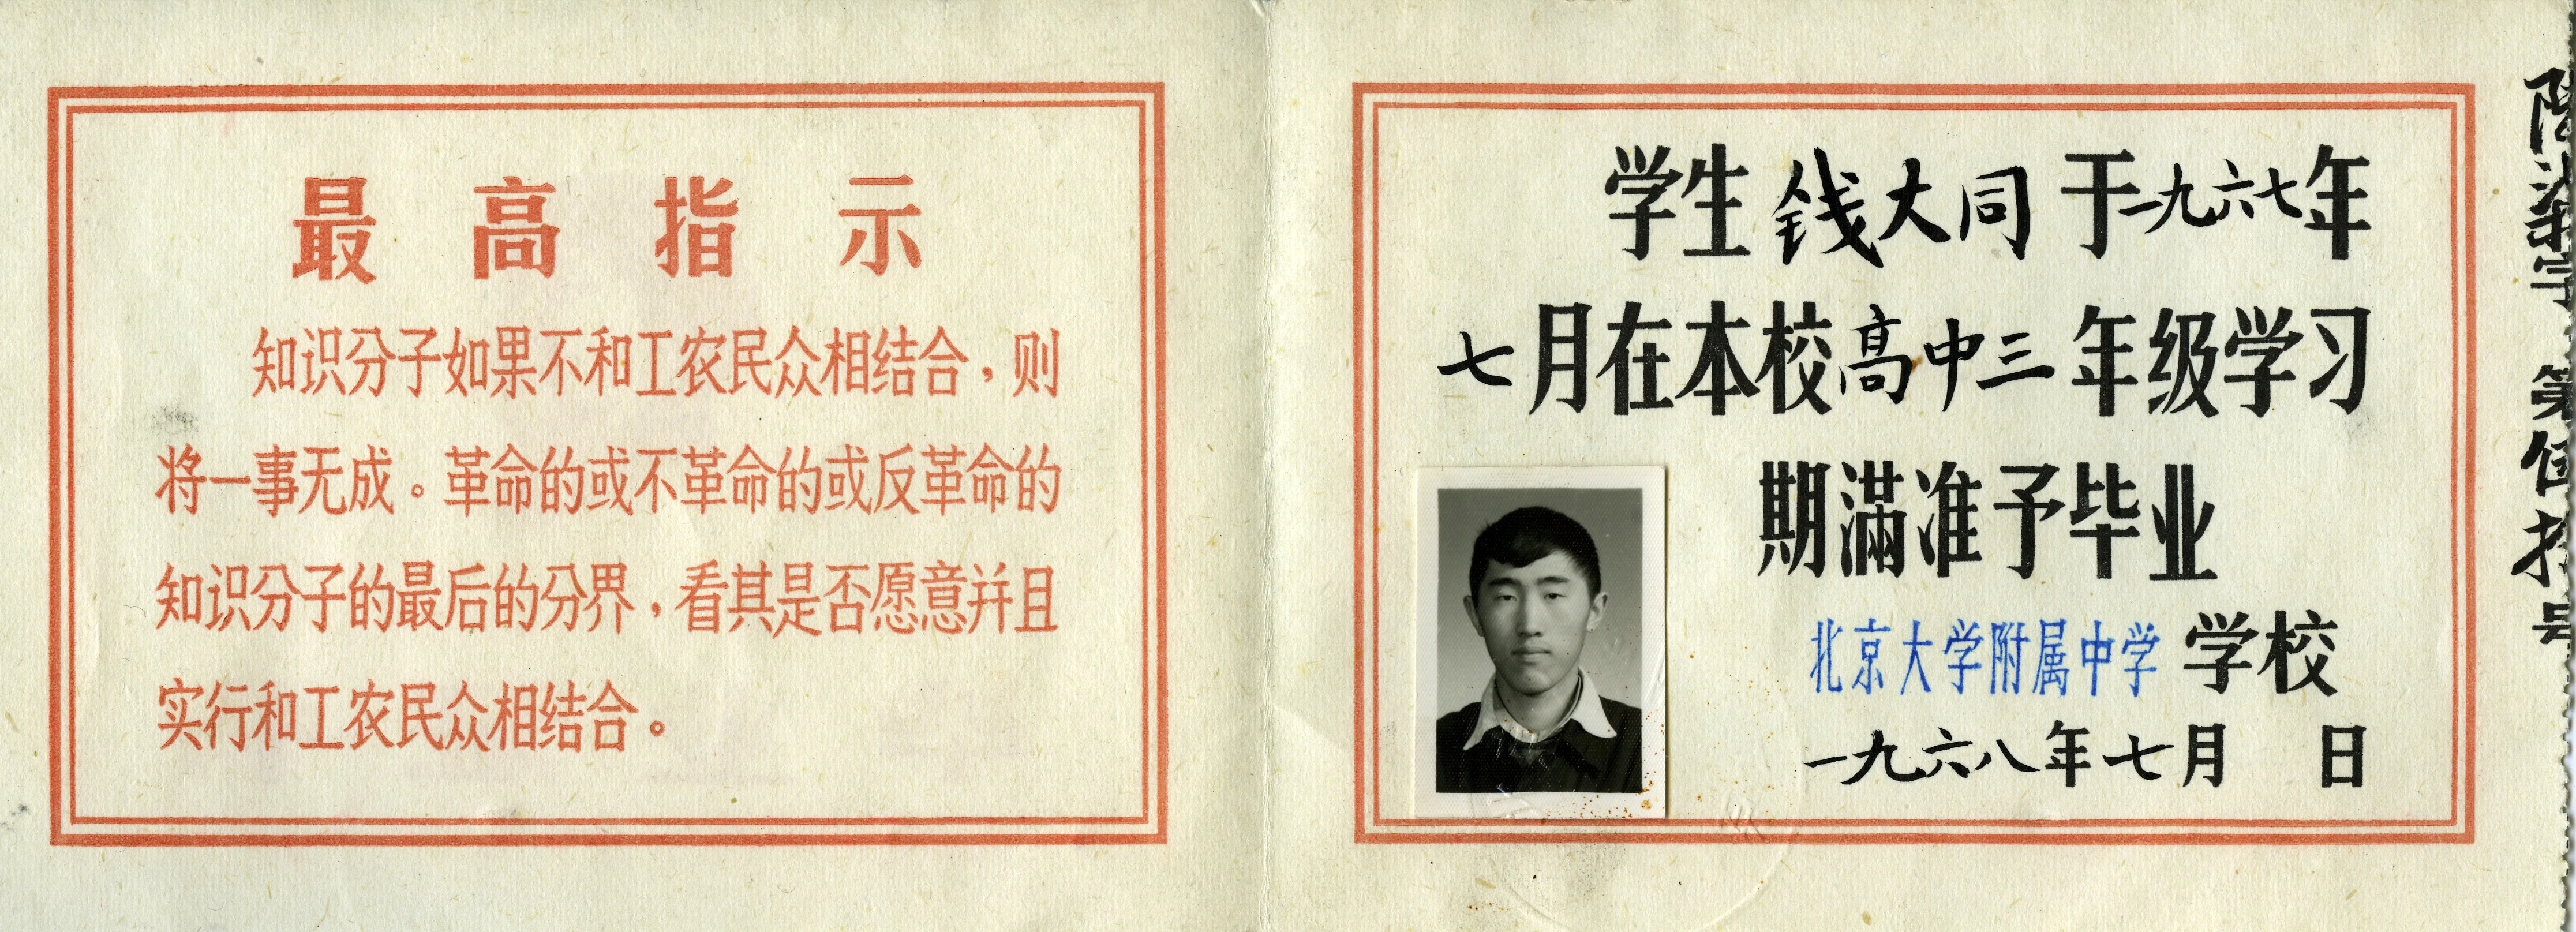 最高指示
知识分子如果不和工农民众相结合，则
将一事无成。革命的或不革命的或反革命的
知识分子的最后的分界，看其是否愿意并且
实行和工农民众相结合。
学生钱大同于一九六七年
七月在本校高中三年级学习
期满准予毕业
北京大学附属中学学校
一九六八年七月 日
字第 号